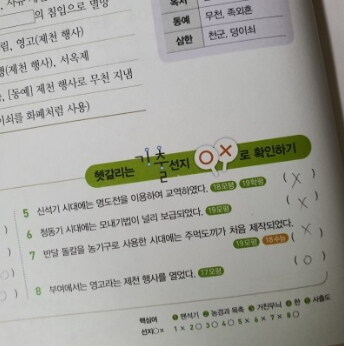 의 침입으로 멸망
옥저
동예 무천, 족외혼
삼한 천군, 덩이쇠
영고(제천 행사)
(제천 행사), 서옥제
[동예] 제천 행사로 무천 지냄
화폐처럼 사용)
헷갈리는 기출 선지 O X 로 확인하기
5 신석기 시대에는 명도전을 이용하여 교역하였다. 18모평 19학평 ( X )
6 청동기 시대에는 모내기법이 널리 보급되었다. 19모평 ( X )
7 반달 돌칼을 농기구로 사용한 시대에는 주먹도끼가 처음 제작되었다. 19모평 18수능 ( X )
8 부여에서는 영고라는 제천 행사를 열었다. 17모평 ( O )
핵심어 ❶ 뗀석기 ❷ 농경과 목축 ❸ 거친무늬 ❹ 한 ❺ 사출도
선지O× 1 × 2 ○ 3 ○ 4 ○ 5 × 6 × 7 × 8 ○